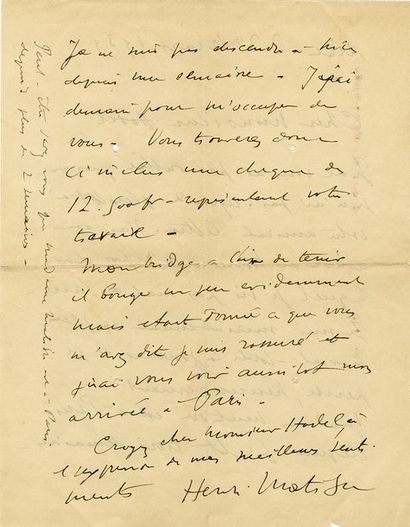 Je ne suis pas descendu à Nice
depuis une semaine - J'irai
demain pour m'occuper de
vous - Vous trouverez donc
ci inclus une cheque de
12.500fr représentant votre
travail -
Mon bridge a l'air de tenir
il bouge un peu evidemment
mais etant donné ce que vous
m'avez dit je suis rassuré et
j'irai vous voir aussitot mon
arrivée à Paris -
Croyez cher Monsieur Hodel à
l'expression de mes meilleurs senti
ments Henri Matisse
Peut-être savez vous que Madame Matisse est à Paris
depuis plus de 2 semaines -